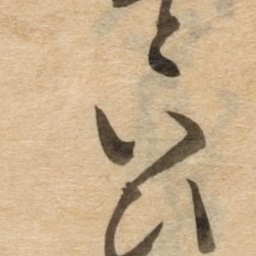 といひ